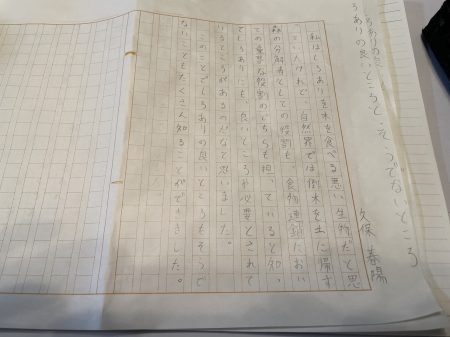 しろありの良いところと、そうでないところ
久保 春陽
私はしろありを木を食べる悪い生物だと思
っていたけれど、自然界では倒木を土に帰す
森の分解者としての役割も、食物連鎖におい
ての重要な役割のどちらも担っていると知っ
て、しろありにも、良いところや必要とされて
いるところがあるのだなと思いました。
このことでしろありの良いところもそうで
ないこともたくさん知ることができました。